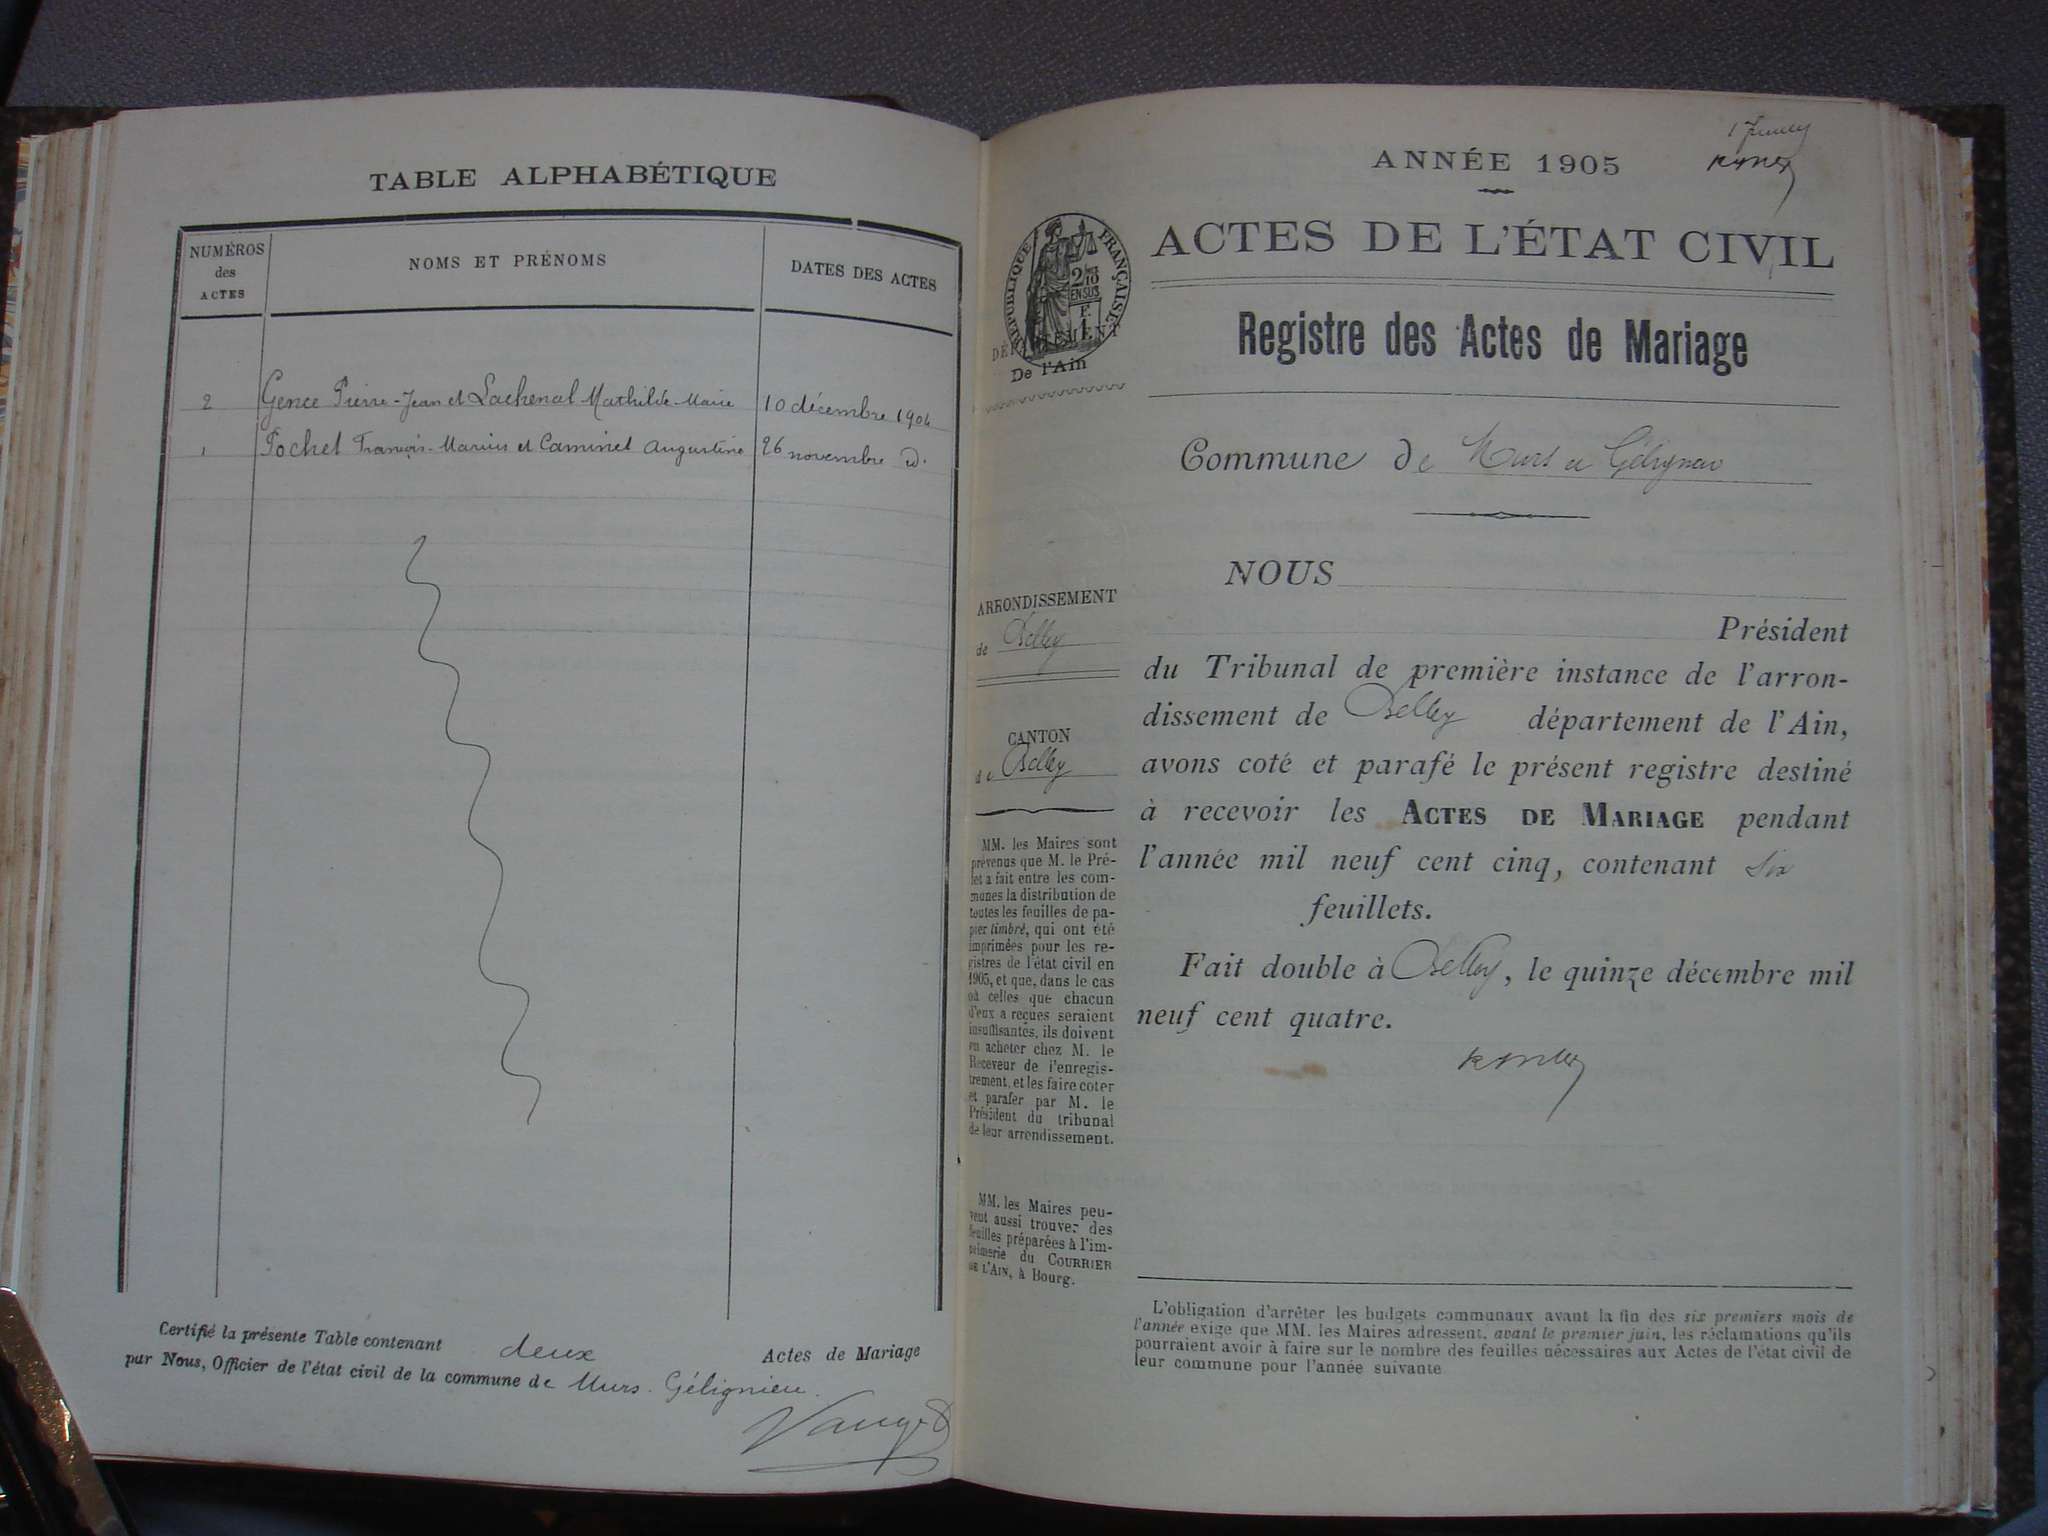 TABLE ALPHABÉTIQUE
NUMÉROS des ACTES
NOMS ET PRÉNOMS
DATES DES ACTES
2 Gence Pierre-Jean et Lachenal Mathilde-Marie 10 décembre 1904
1 Pochet François-Marius et Caminet Augustine 26 novembre d°
Certifié la présente Table contenant deux Actes de Mariage
par Nous, Officier de l'état civil de la commune de Murs-Gélignieu.
ANNÉE 1905
ACTES DE L'ÉTAT CIVIL
RÉPUBLIQUE FRANÇAISE
2/10 EN SUS
F. 1
DÉPARTEMENT
De l'Ain
Registre des Actes de Mariage
Commune de Murs et Gélignieu
ARRONDISSEMENT
de Belley
CANTON
de Belley
MM. les Maires sont
prévenus que M. le Pré-
fet a fait entre les com-
munes la distribution de
toutes les feuilles de pa-
pier timbré, qui ont été
imprimées pour les re-
gistres de l'état civil en
1905, et que, dans le cas
où celles que chacun
d'eux a reçues seraient
insuffisantes, ils doivent
en acheter chez M. le
Receveur de l'enregis-
trement, et les faire coter
et parafer par M. le
Président du tribunal
de leur arrondissement.
MM. les Maires peu-
vent aussi trouver des
feuilles préparées à l'im-
primerie du COURRIER
DE L'AIN, à Bourg.
NOUS
Président
du Tribunal de première instance de l'arron-
dissement de Belley département de l'Ain,
avons coté et parafé le présent registre destiné
à recevoir les ACTES DE MARIAGE pendant
l'année mil neuf cent cinq, contenant six
feuillets.
Fait double à Belley, le quinze décembre mil
neuf cent quatre.
L'obligation d'arrêter les budgets communaux avant la fin des six premiers mois de
l'année exige que MM. les Maires adressent, avant le premier juin, les réclamations qu'ils
pourraient avoir à faire sur le nombre des feuilles nécessaires aux Actes de l'état civil de
leur commune pour l'année suivante